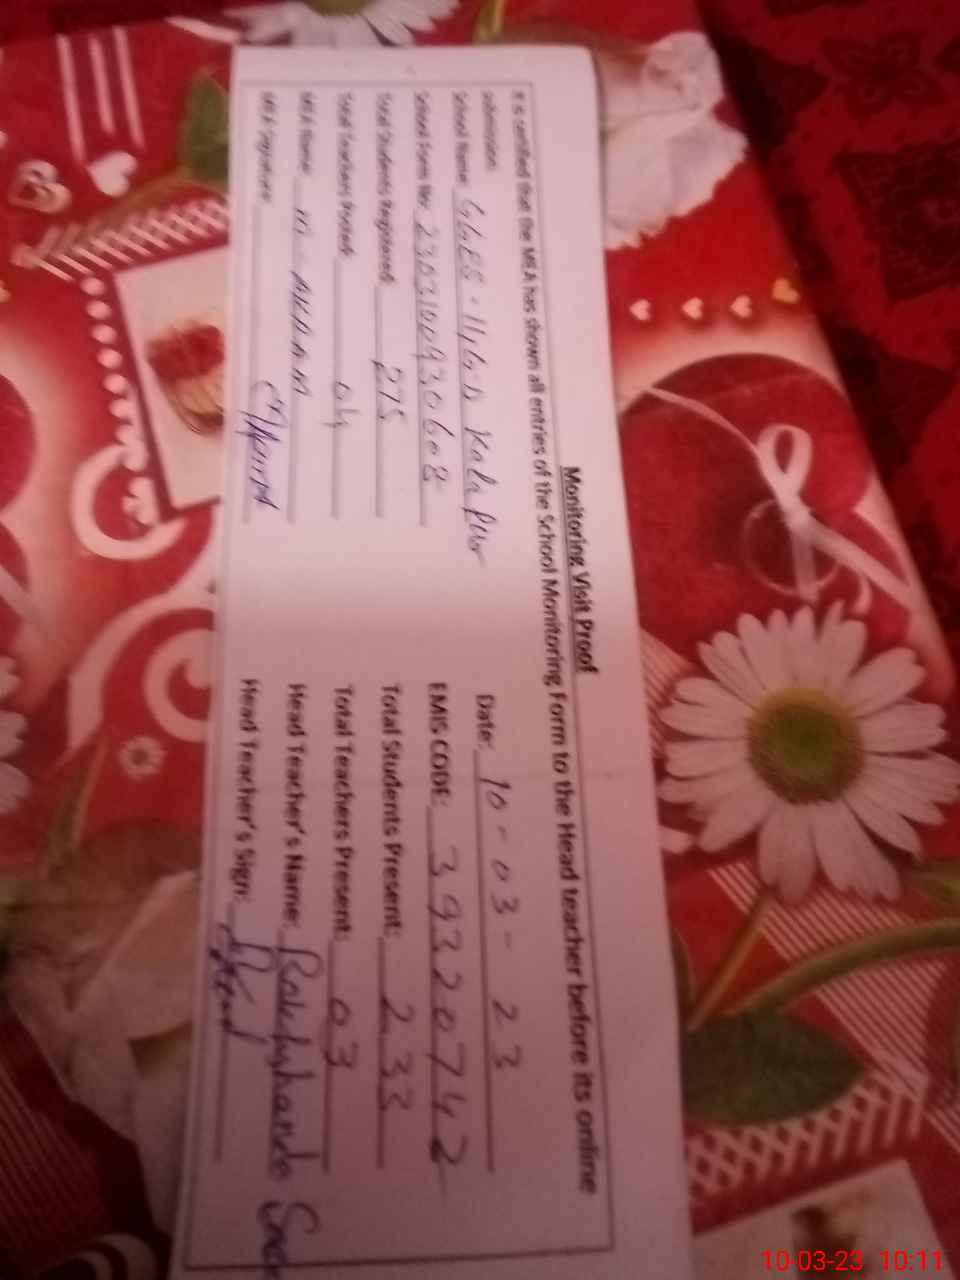 Monitoring Visit Proof
It is certified that the MEA has shown all entries of the School Monitoring Form to the Head teacher before its online
submission.
School Name: Date: 10-03-23
School Semis No: EMIS CODE: 39320742
Total Students Registered: 275 Total Students Present: 233
Total Teachers Posted: 04 Total Teachers Present: 03
MEA Name: M-AKRAM Head Teacher's Name:
MEA Signature Head Teacher's Sign:
10-03-23 10:11